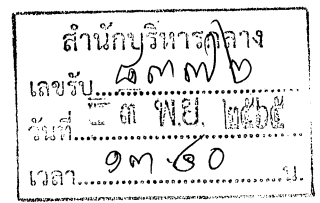 สำนักบริหารกลาง
เลขรับ ๘๓๗๒
วันที่ - ๓ พ.ย. ๒๕๖๕
เวลา ๑๓.๔๐ น.